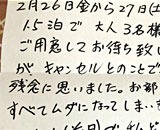 2月26日金から27日(土
1.5泊で大人3名様
ご用意してお待ち致し
がキャンセルとのことで
残念に思いました。お部
すべてムダになってしまい